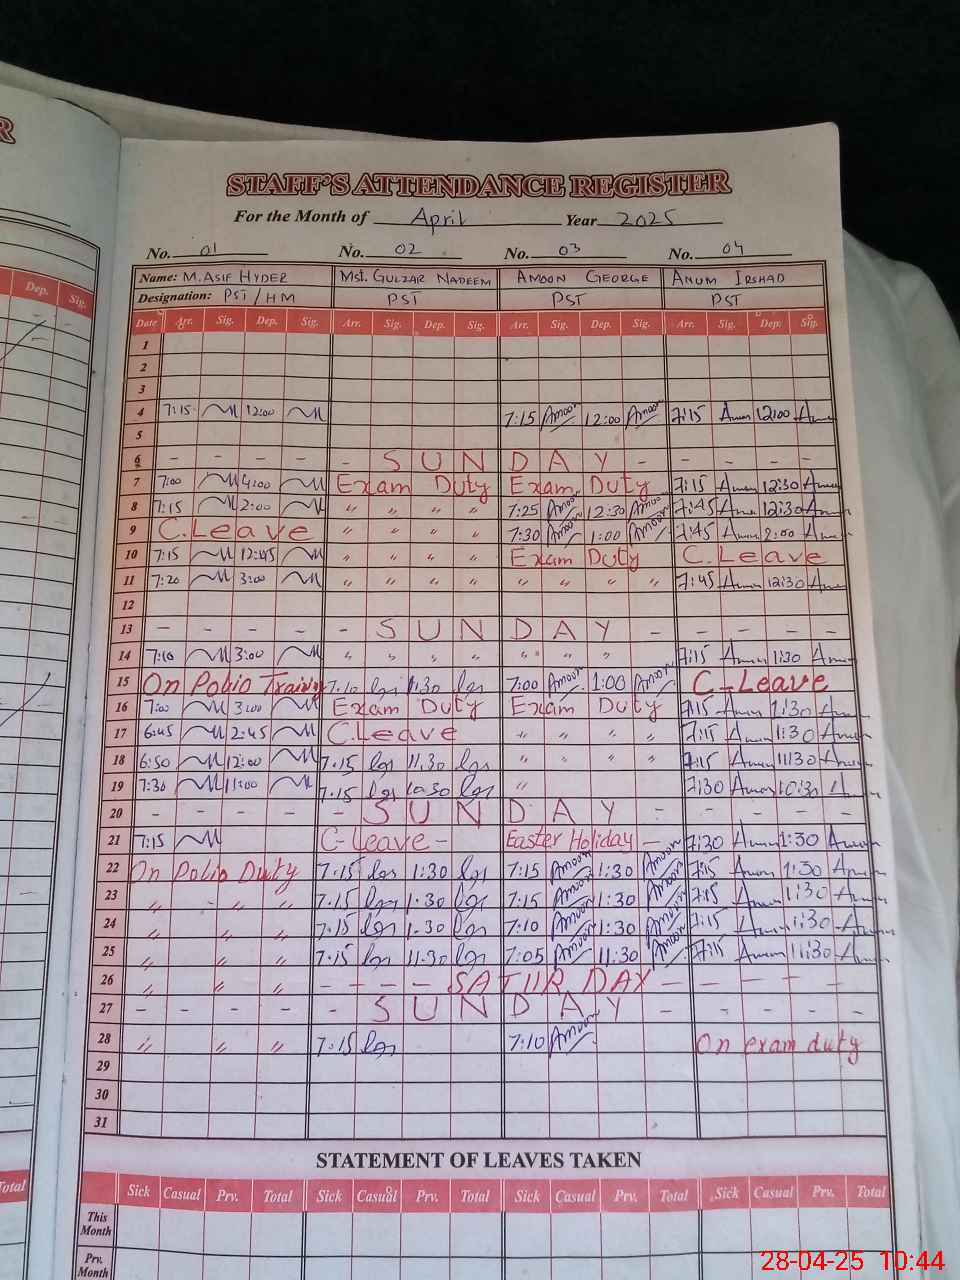 R
STAFF'S ATTENDANCE REGISTER
For the Month of April Year 2025
No. 01 No. 02 No. 03 No. 04
Name: M. ASIF HYDER Mst. GULZAR NADEEM AMOON GEORGE ANUM IRSHAD
Designation: PST / HM PST PST PST
Dep. Sig. Date Arr. Sig. Dep. Sig. Arr. Sig. Dep. Sig. Arr. Sig. Dep. Sig. Arr. Sig. Dep. Sig.
1
2
3
4 7:15 12:00 7:15 Amoon 12:00 Amoon 7:15 Anum 12:00 Anum
5
6 - - - - - SUNDAY - - - - -
7 7:00 4:00 Exam Duty Exam Duty 7:15 Anum 12:30 Anum
8 7:15 2:00 " " " " 7:25 Amoon 12:30 Amoon 7:45 Anum 12:30 Anum
9 C.Leave " " " " 7:30 Amoon 1:00 Amoon 7:45 Anum 2:00 Anum
10 7:15 12:45 " " " " Exam Duty C.Leave
11 7:20 3:00 " " " " " " " " 7:45 Anum 12:30 Anum
12
13 - - - - - SUNDAY - - - - -
14 7:10 3:00 " " " " " " " " 7:15 Anum 1:30 Anum
15 On Polio Training 7:10 1:30 7:00 Amoon 1:00 Amoon C-Leave
16 7:00 3:00 Exam Duty Exam Duty 7:15 Anum 1:30 Anum
17 6:45 2:45 C.Leave " " " " 7:15 Anum 1:30 Anum
18 6:50 12:00 7.15 11.30 " " " " 7:15 Anum 11:30 Anum
19 7:30 11:00 7.15 10.30 " 7:30 Anum 10:30 Anum
20 - - - - - SUNDAY - - - - -
21 7:15 C-Leave - Easter Holiday - 7:30 Anum 1:30 Anum
22 On Polio Duty 7.15 1:30 7:15 Amoon 1:30 Amoon 7:15 Anum 1:30 Anum
23 " " " " 7.15 1.30 7:15 Amoon 1:30 Amoon 7:15 Anum 1:30 Anum
24 " " " 7.15 1.30 7:10 Amoon 1:30 Amoon 7:15 Anum 1:30 Anum
25 " " " 7.15 11.30 7:05 Amoon 11:30 Amoon 7:15 Anum 11:30 Anum
26 " " " - - - - SATURDAY - - - - -
27 - - - - - SUNDAY - - - - -
28 " " " 7:15 7:10 Amoon On exam duty
29
30
31
STATEMENT OF LEAVES TAKEN
Total Sick Casual Prv. Total Sick Casual Prv. Total Sick Casual Prv. Total Sick Casual Prv. Total
This Month
Prv. Month
28-04-25 10:44